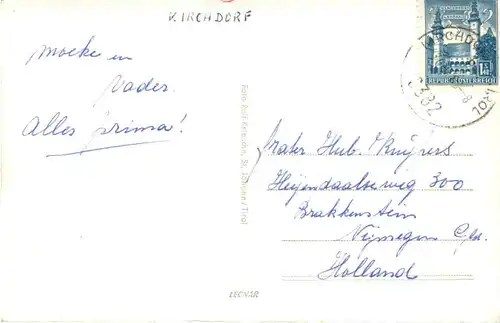 KIRCHDORF
moeke en
Vader.
Alles prima!
Foto Rolf Kriesche, St. Johann/Tirol
KIRCHDO
6382
REPUBLIK ÖSTERREICH
frater Hub. Kuijpers
Heijendaalseweg 300
Brakkenstein
Nijmegen Gld.
Holland